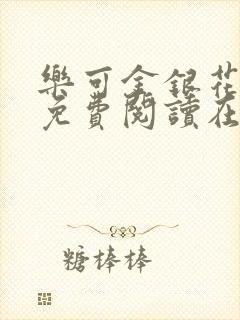 樂可金銀花
免費閱讀在
糖棒棒